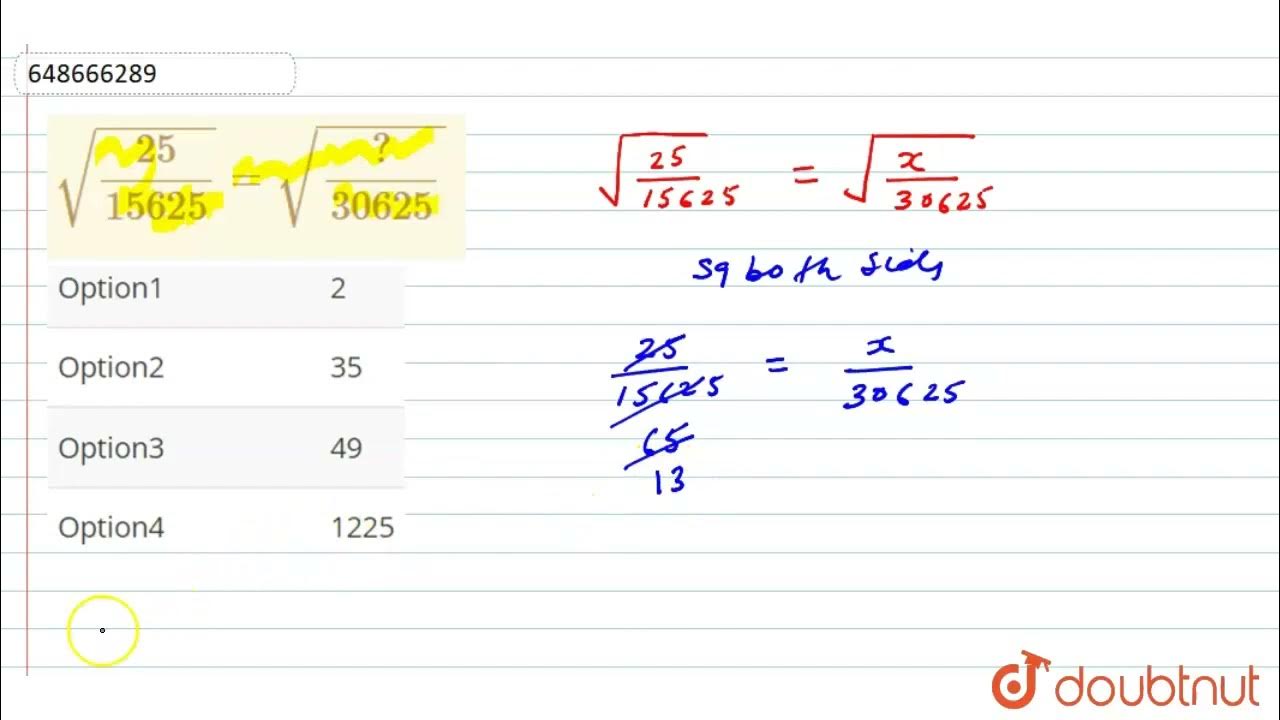 648666289
√(25/15625) = √(?/30625)
Option1 2
Option2 35
Option3 49
Option4 1225
√(25/15625) = √(x/30625)
sq both sides
25/15625 = x/30625
65
13
doubtnut